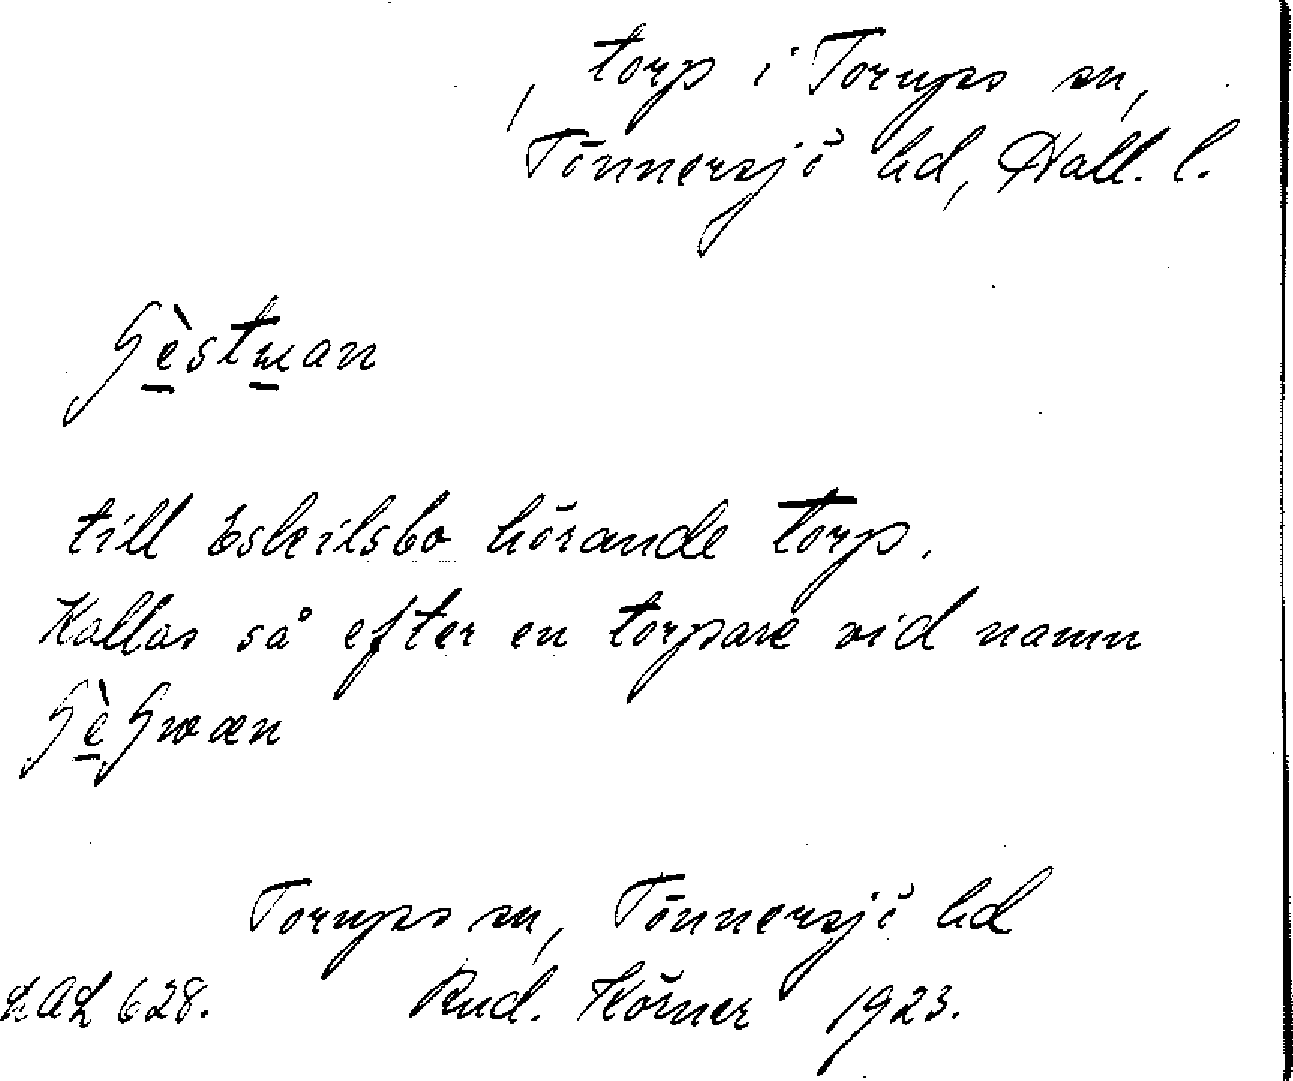 , torp i Torups sn,
Tönnersjö hd, Hall. l.
Gèstman
till Eskilsbo hörande torp.
Kallas så efter en torpare vid namn
LAL 628. Rud. Körner 1923.
Torups sn, Tönnersjö hd